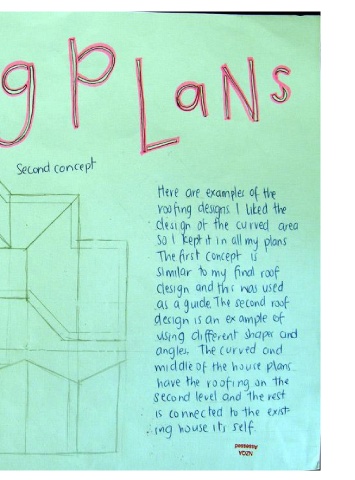 g PLaNs
Second concept
Here are examples of the
roofing designs I liked the
design of the curved area
so I kept it in all my plans
The first concept is
similar to my final roof
design and this was used
as a guide. The second roof
design is an example of
using different shapes and
angles. The curved and
middle of the house plans
have the roofing on the
second level and the rest
is connected to the exist-
ing house its self.